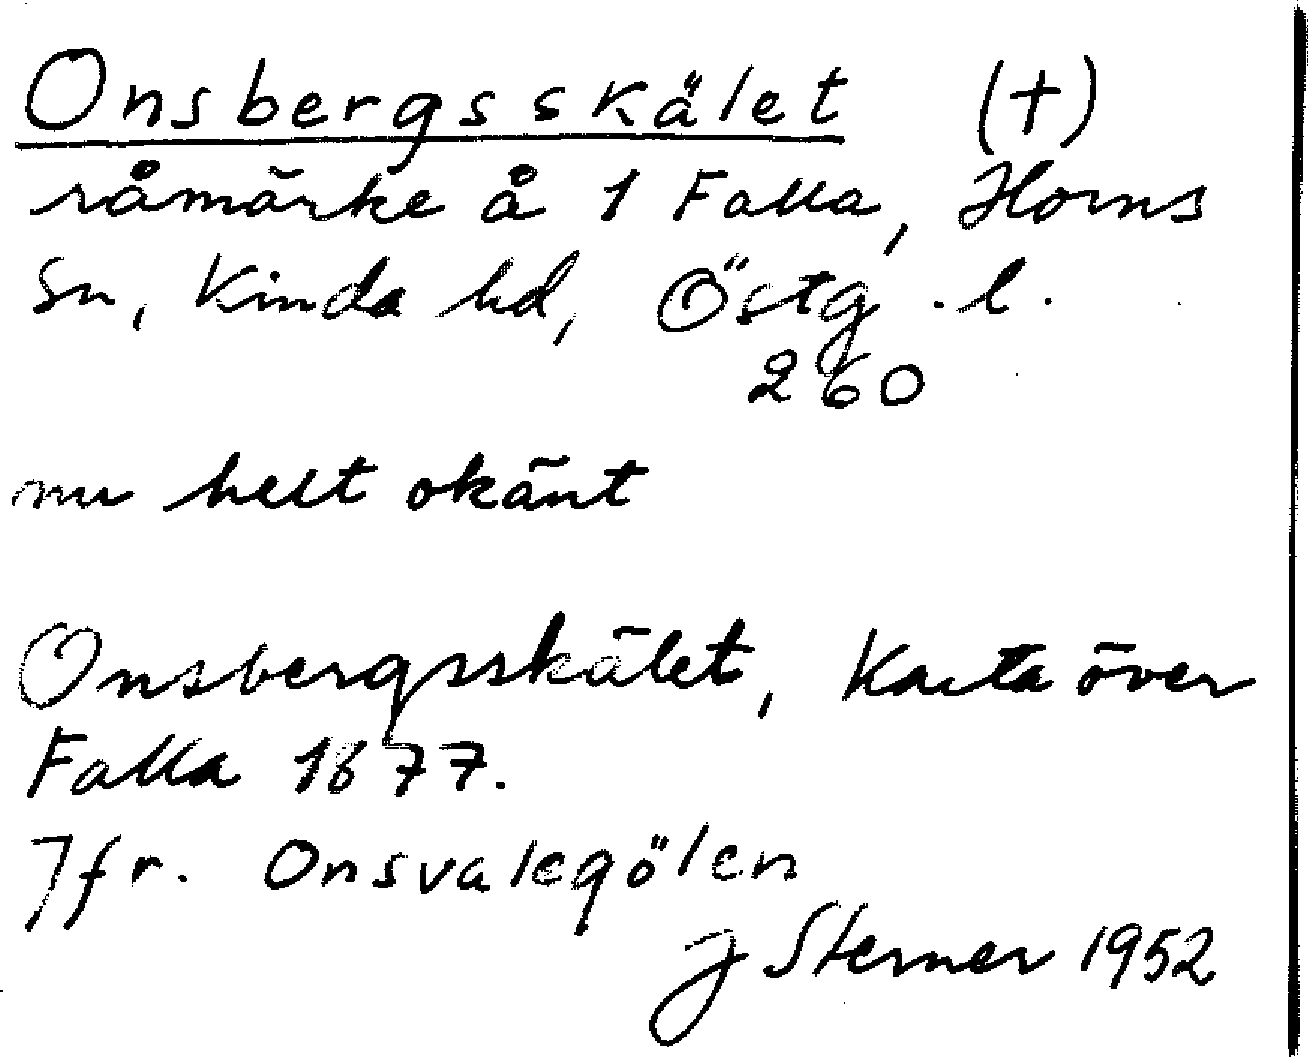 Onsbergsskälet (†)
råmärke å 1 Falla, Horns
sn, Kinda hd, Östg. l.
260
nu helt okänt
Onsbergsskälet, Karta över
Falla 1877.
Jfr. Onsvalegölen
J Sterner 1952